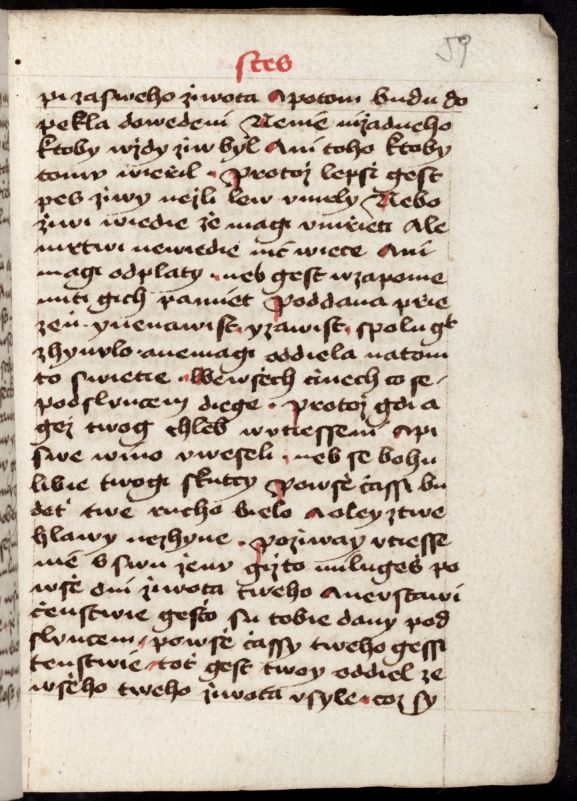 59
stes
pi zasweho ziwota A potom budu do
pekla dowedeni Nenie nizadneho
ktoby wzdy ziw byl Ani toho ktoby
tomu wieril · Protoz lepsi gest
pes ziwy nezli lew vmrly Nebo
ziwi wiedie ze magi vmrieti Ale
mrtwi newiedie nic wiece Ani
magi odplaty · neb gest wzapome
nuti gich pamiet Poddana prie
zen · y nenawist · y zawist · spolu gt
zhynulo · a nemagi oddiela na tom
to swietie · We wsech cinech co se
pod sluncem diege · Protoz gdi a
gez twog chleb w utiesseni A pi
swe wino v weseli · neb se bohu
libie twogi skutcy Po wse cassi bu
dte twe rucho bielo A oley z twe
hlawy nezhyne · Poziway vtiesse
nie s swu zenu gizto milugess po
wse dni ziwota tweho A nerstawi
censtwie gesto su tobie dany pod
sluncem · po wse cassy tweho gessi
tenstwie · tot gest twoy oddiel ze
wseho tweho ziwota vsyle · coz sy